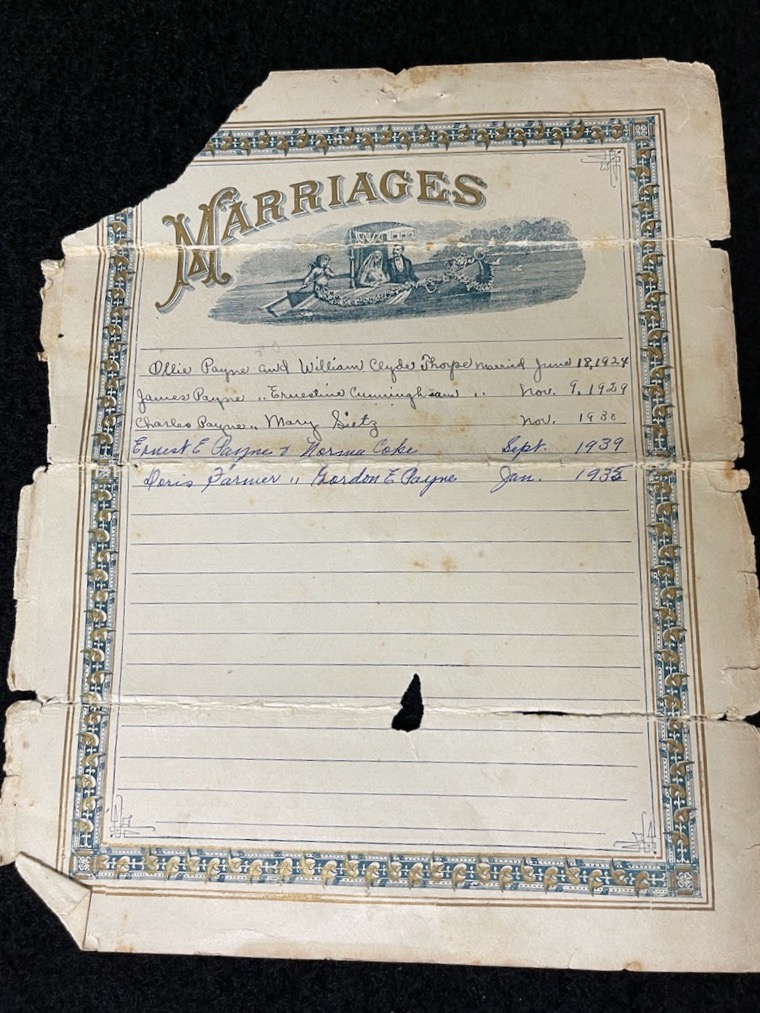 MARRIAGES
Ollie Payne and William Clyde Thorpe married June 18, 1924
James Payne ,, Ernestine Cunningham ,, Nov. 9, 1929
Charles Payne ,, Mary Sietz Nov. 1930
Ernest E Payne & Norma Coke Sept. 1939
Doris Farmer ,, Gordon E Payne Jan. 1935